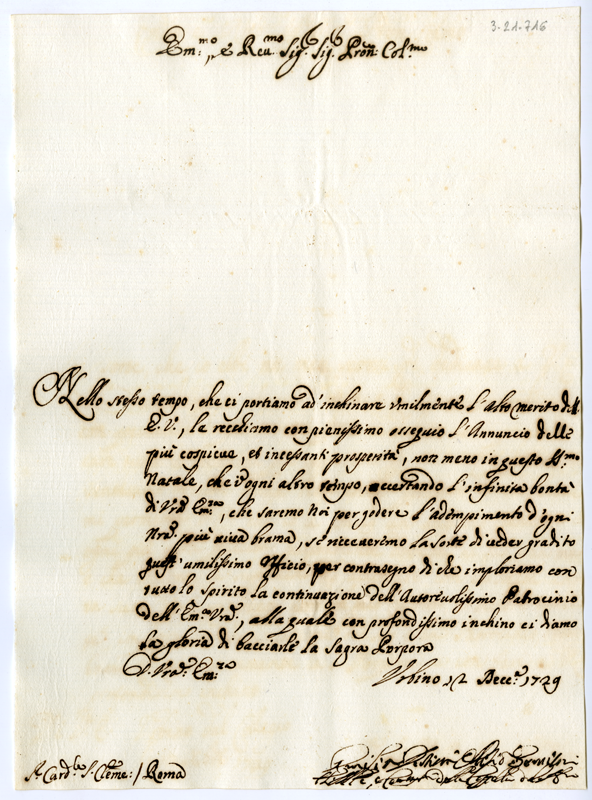 3-21-716
Em:mo e Reu.mo Sig.r Sig.r Pron: Col.mo
Nello stesso tempo, che ci portiamo ad inchinare umilmente l'alto merito dell
E.V., le recediamo con pienissimo ossequio l'Annuncio delle
più cospicue, et incessanti prosperità, non meno in questo SS.mo
Natale, che d'ogni altro tempo, accertando l'infinita bontà
di Vra Em:za, che saremo Noi per godere l'adempimento d'ogni
Nra. più viva brama, se riceveremo la sorte di veder gradito
quest'umilissimo Officio, per contrasegno di che imploriamo con
tutto lo spirito la continuazione dell'Autorevolissimo Patrocinio
dell'Em:za Vra., alla quale con profondissimo inchino ci diamo
la gloria di bacciarle la Sagra Porpora
D. Vra. Em:za
Urbino 12 Dece.e 1729
S.r Card.le S. Cleme: / Roma